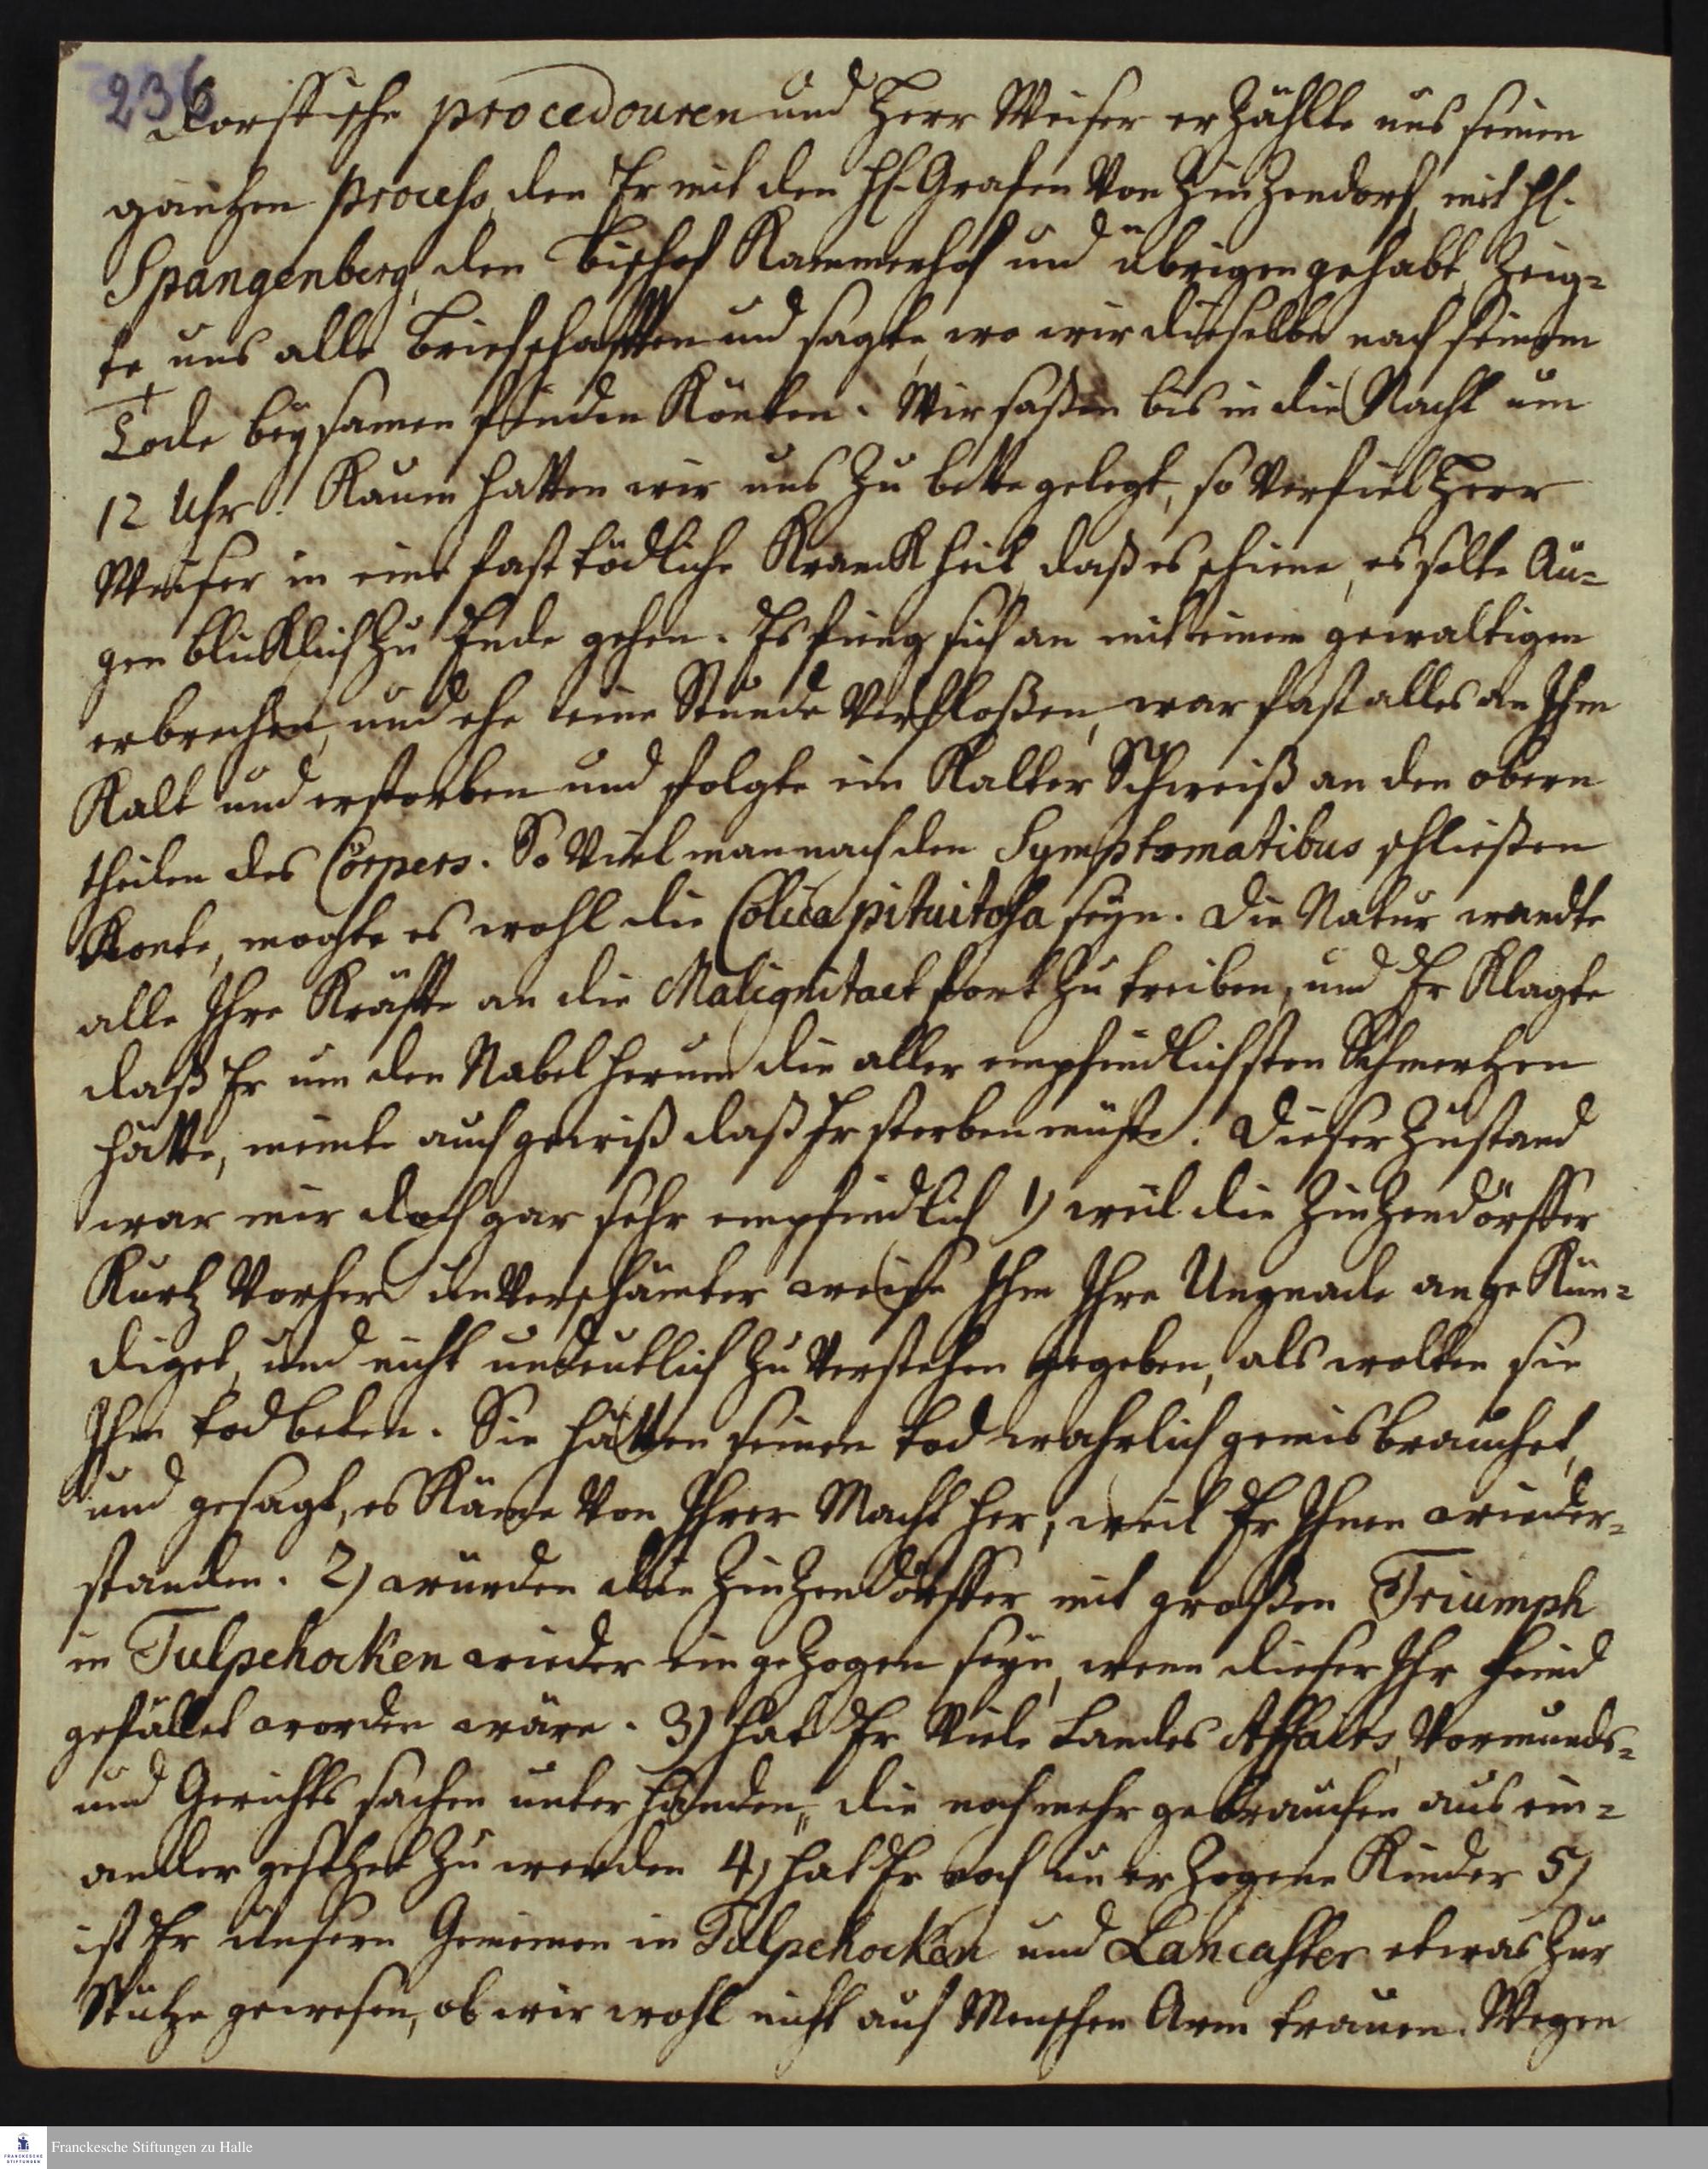 236
dorffische procedouren und Herr Weiser erzählte uns seinen
gantzen process, den Er mit den H. Grafen von Zinzendorf, mit H.
Spangenberg, den Bischof Kammerhof und übrigen gehabt, zeig-
te uns alle Briefschafften und sagte, wo wir dieselbe nach seinem
Tode beysamen finden könten. Wir saßen bis in die Nacht um
12 Uhr. Kaum hatten wir uns zu bette gelegt, so verfiel Herr
Weiser in eine fast tödliche Kranckheit, daß es schiene, es solte Au-
genblicklich zu Ende gehen. Es fieng sich an mit einem gewaltigen
erbrechen, und ehe eine Stunde verfloßen, war fast alles an Ihm
Kalt und erstorben und folgte ein Kalter Schweiß an den obern
theilen des Cörpers. So viel man nach den Symptomatibus schließen
Konte, mochte es wohl die Colica pituitosa seyn. Die Natur wandte
alle Ihre Kräffte an die Malignitaet fort zu treiben, und Er Klagte
daß Er um den Nabel herum die aller empfindlichsten Schmertzen
hätte, meinte auch gewiß daß Er sterben müste. Dieser Zustand
war mir doch gar sehr empfindlich 1) weil die Zinzendörffer
Kurtz vorher unverschämter weise Ihm Ihre Ungnade angeKün-
diget, und nicht undeutlich zu verstehen gegeben, als wolten sie
Ihn todbeten. Sie hätten seinen tod wahrlich gemisbrauchet,
und gesagt, es Käme von Ihrer Macht her, weil Er Ihnen wieder-
standen. 2) würden die Zinzendörffer mit großen Triumph
in Tulpehocken wieder eingezogen seyn, wenn dieser Ihr feind
gefället worden wäre. 3) hat Er viele Landes Affaires, Vormunds-
und Gerichts sachen unter Händen, die noch mehr gebrauchen aus ein-
ander gesetzet zu werden 4) hat Er noch unerzogene Kinder 5)
ist Er unsern Gemeinen in Tulpehocken und Lancaster etwas zur
Stütze gewesen, ob wir wohl nicht auf Menschen Arm trauen. Wegen
FRANCKESCHE
STIFTUNGEN
Franckesche Stiftungen zu Halle